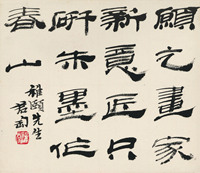 願乞畫家
新意匠只
研朱墨作
春山
頤先生
君匋